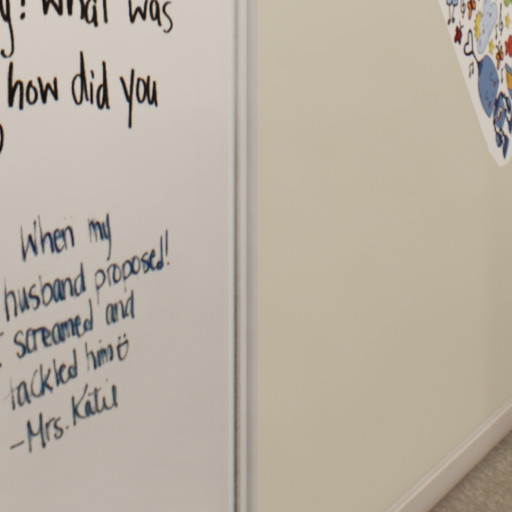 y! What was
how did you
When my
husband proposed!
screamed and
tackled him
-Mrs. Katie